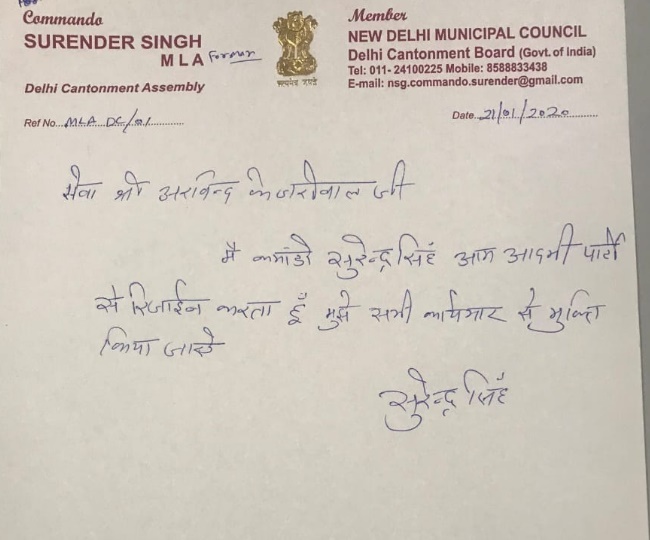 Commando
SURENDER SINGH
MLA Former
Delhi Cantonment Assembly
Ref No. MLA DC/01
सत्यमेव जयते
Member
NEW DELHI MUNICIPAL COUNCIL
Delhi Cantonment Board (Govt. of India)
Tel: 011- 24100225 Mobile: 8588833438
E-mail: nsg.commando.surender@gmail.com
Date. 21/01/2020
सेवा श्री अरविन्द केजरीवाल जी
मै कमांडो सुरेन्द्र सिहं आम आदमी पार्टी
से रिजाईन करता हूँ मुझे सभी कार्यभार से मुक्ति
किया जाऐ
सुरेन्द्र सिहं